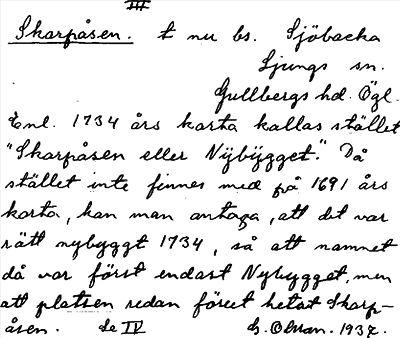 III
Skarpåsen. t nu bs. Sjöbacka
Ljungs sn.
Gullbergs hd. Ögl.
Enl. 1734 års karta kallas stället
"Skarpåsen eller Nÿbÿgget." Då
stället inte finnes med på 1691 års
karta, kan man antaga, att det var
rätt nybyggt 1734, så att namnet
då var först endast Nybygget, men
att platsen redan förut hetat Skarp-
åsen. se IV 1937.